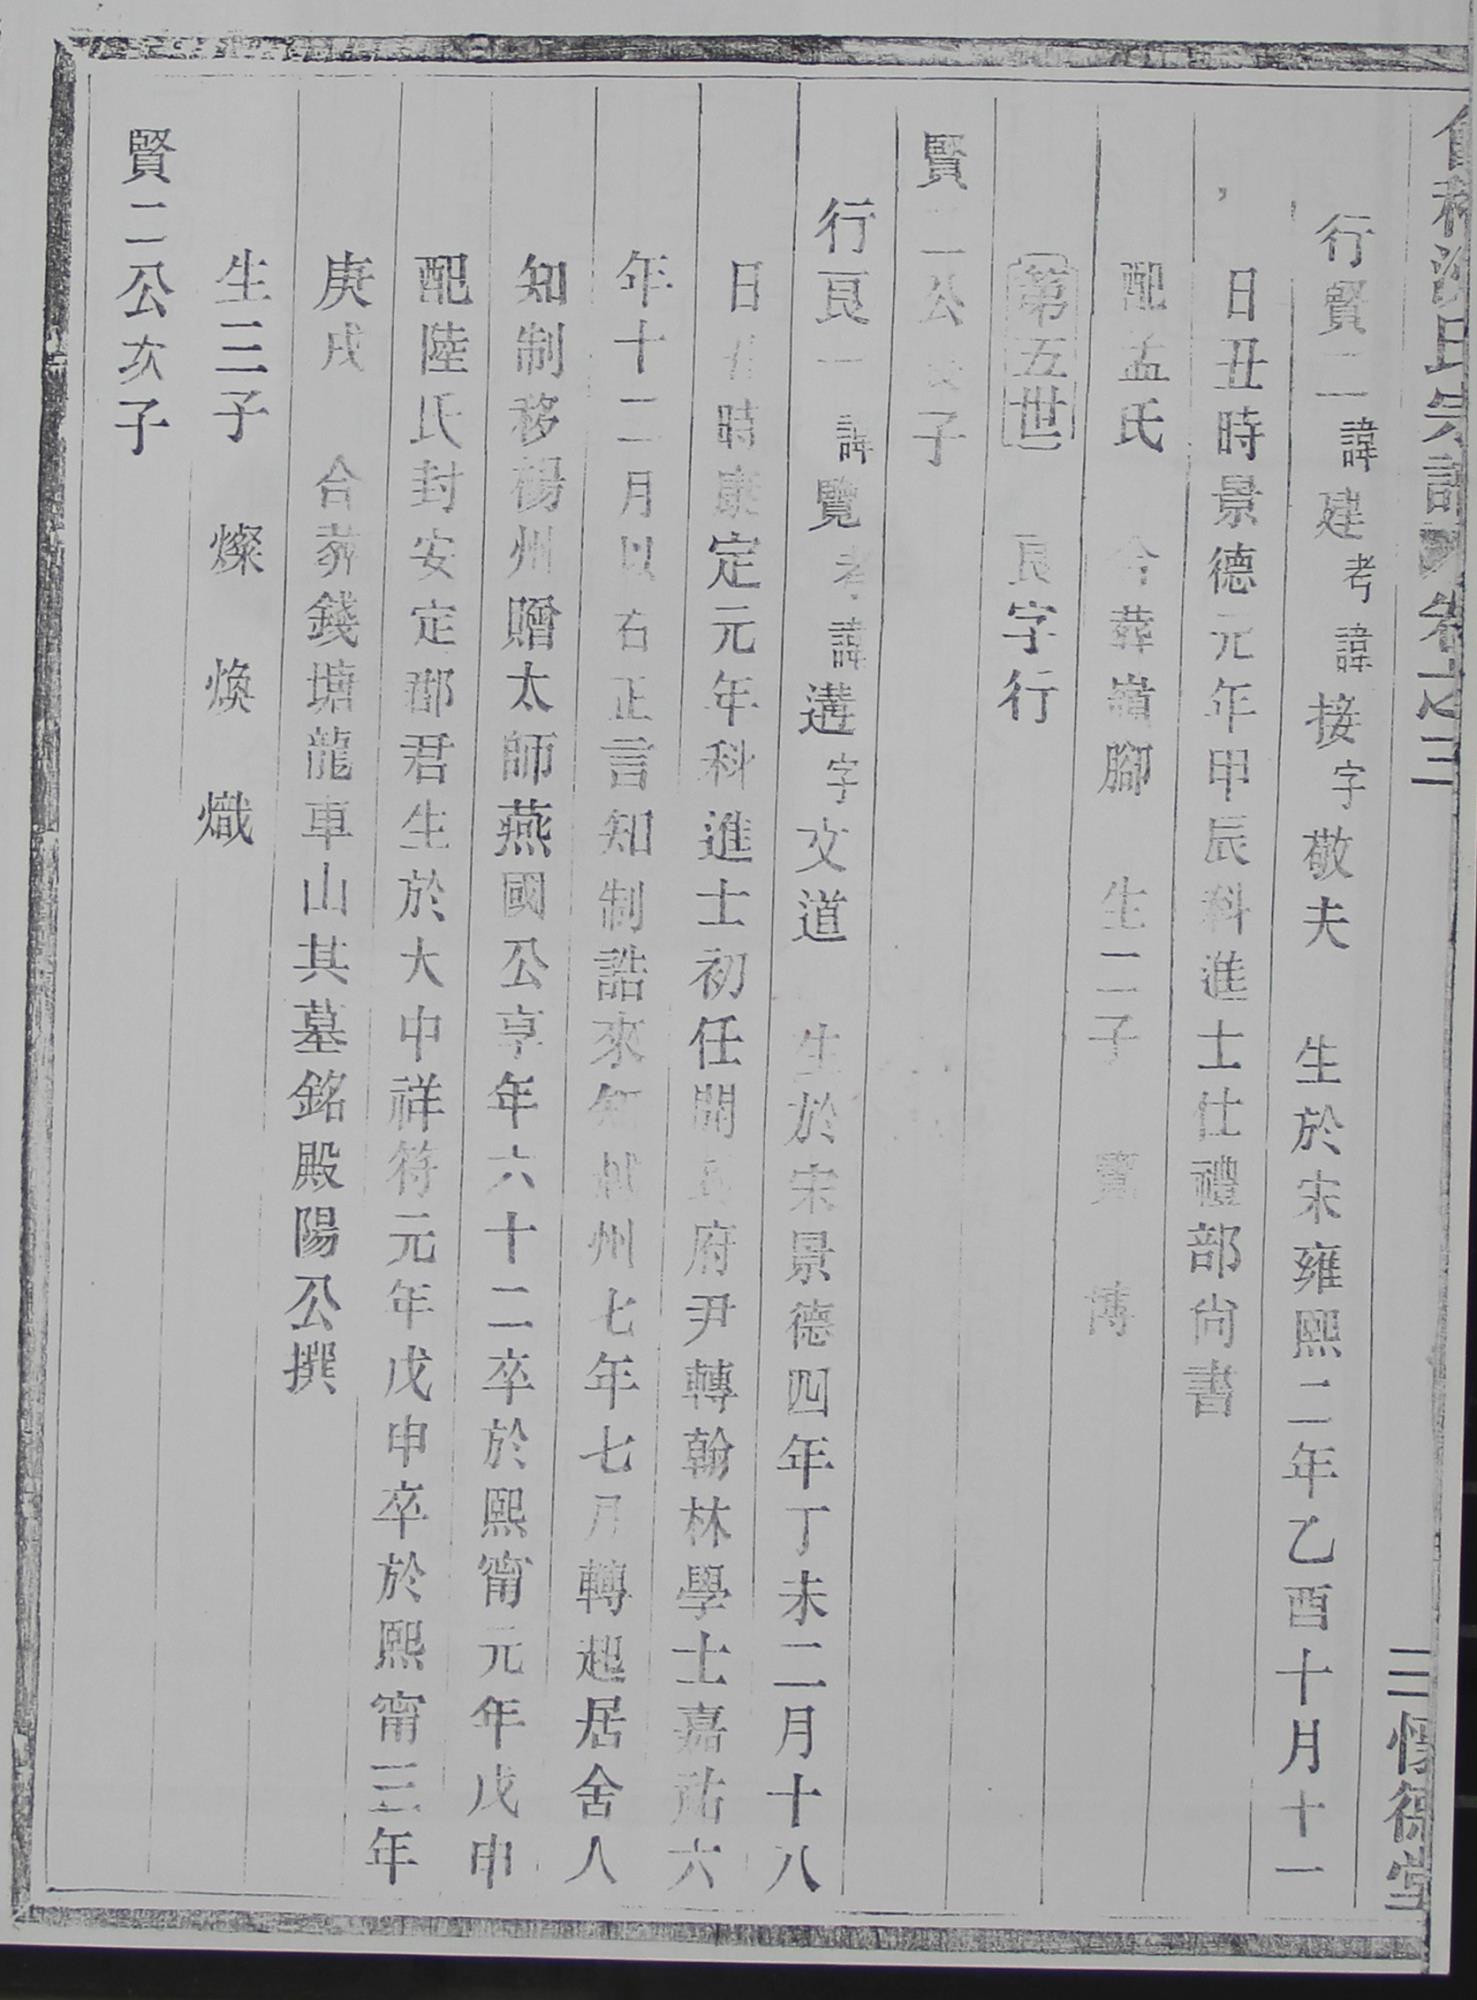 會稽沈氏宗譜卷之三 三 德堂
行賢二諱建考諱接字敬夫 生於宋雍熙二年乙酉十月十一
日丑時景德元年甲辰科進士仕禮部尙書
配孟氏 合葬嶺腳 生二子 博
第五世 艮字行
賢二公長子
行艮一諱覽考諱遘字文道 生於宋景德四年丁未二月十八
日 時康定元年科進士初任開封府尹轉翰林學士嘉祐六
年十二月以右正言知制誥來知 州七年七月轉起居舍人
知制移楊州贈太師燕國公享年六十二卒於熙甯元年戊申
配陸氏封安定郡君生於大中祥符元年戊申卒於熙甯三年
庚戌 合葬錢塘龍車山其墓銘殿陽公撰
生三子 燦 煥 熾
賢二公次子